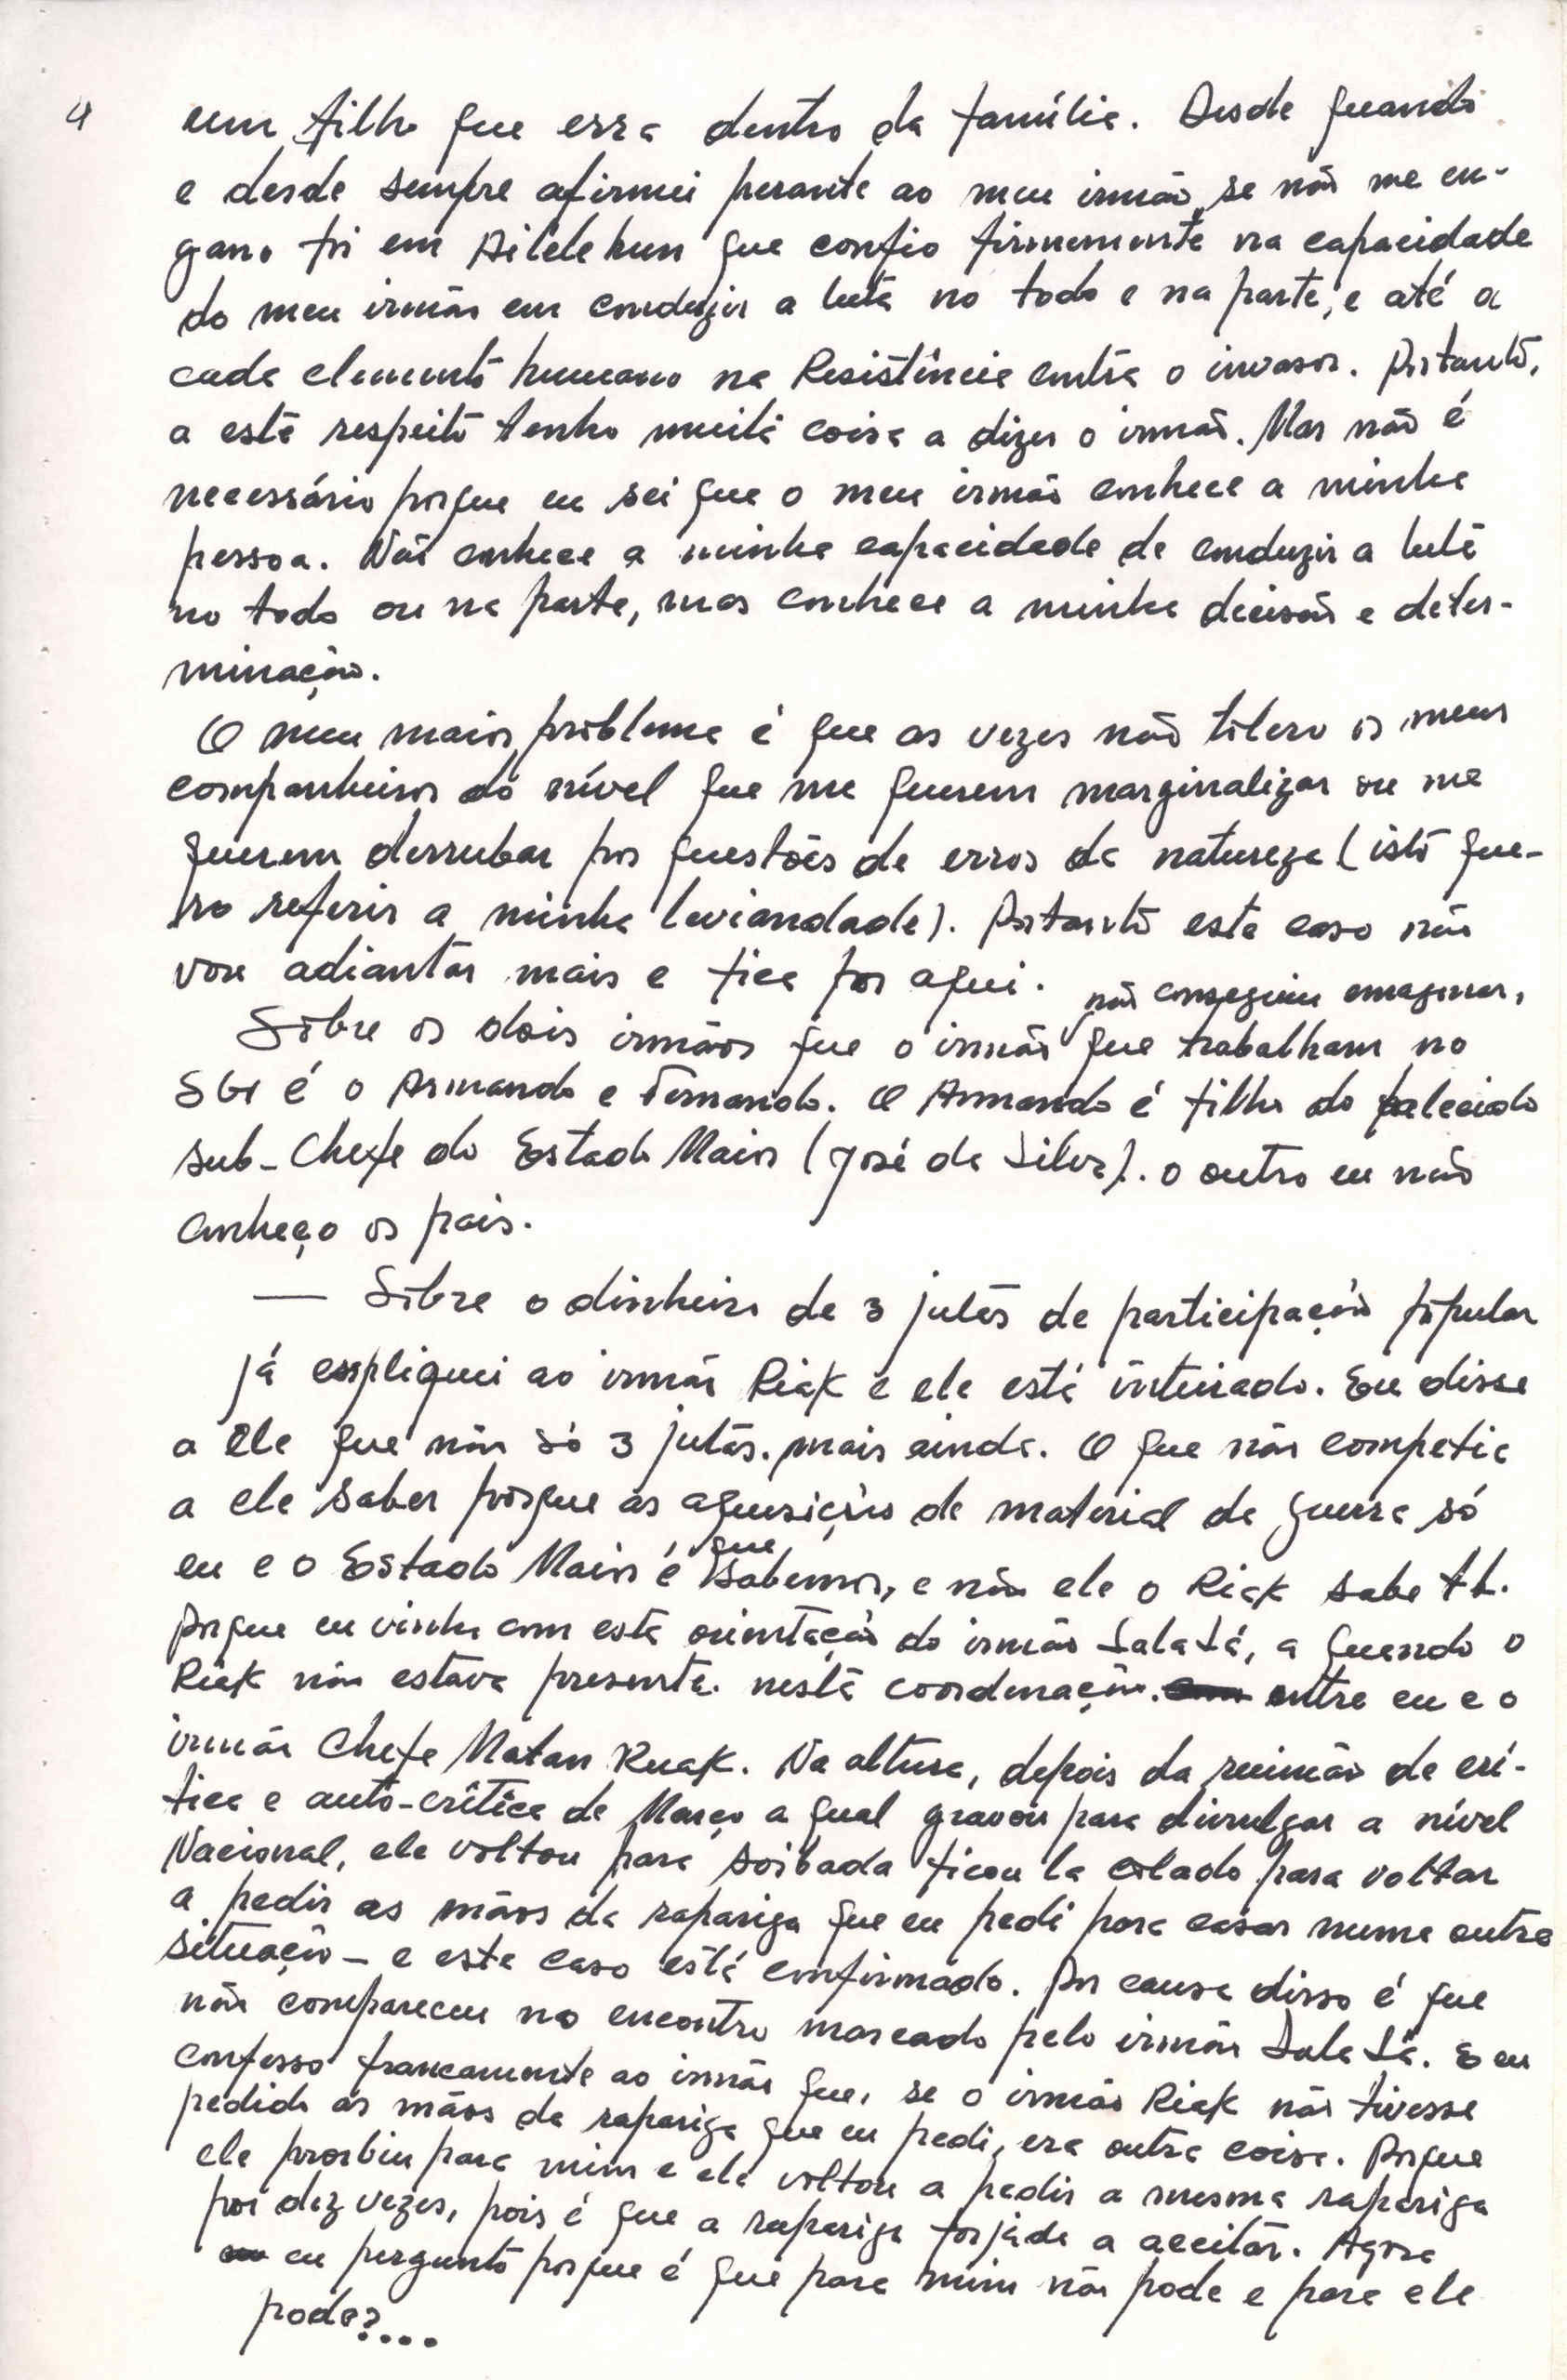 4
um filho que erra dentro da família. Desde quando
e desde sempre afirmei perante ao meu irmão, se não me en-
gano foi em Ailelehun que confio firmemente na capacidade
do meu irmão em conduzir a luta no todo e na parte, e até a
cada elemento humano na Resistência contra o invasor. Portanto,
a este respeito tenho muita coisa a dizer o irmão. Mas não é
necessário porque eu sei que o meu irmão conhece a minha
pessoa. Não conhece a minha capacidade de conduzir a luta
no todo ou na parte, mas conhece a minha decisão e deter-
minação.
O meu maior problema é que as vezes não tolero os meus
companheiros do nível que me querem marginalizar ou me
querem derrubar por questões de erros da natureza (isto que-
ro referir a minha leviandade). Portanto este caso não
vou adiantar mais e fica por aqui.
não conseguiu emaginar,
Sobre os dois irmãos que o irmão que trabalham no
SGI é o Armando e Fernando. O Armando é filho do falecido
sub-Chefe do Estado Maior (José da Silva). o outro eu não
conheço os pais.
— Sobre o dinheiro de 3 jutas de participação popular
já expliquei ao irmão Riak e ele está inteirado. Eu disse
a ele que não só 3 jutas. mais ainda. O que não competia
a ele saber porque as aqusições de material de guerra só
que
eu e o Estado Maior é sabemos, e não ele o Riak sabe tb.
Porque eu vinha com esta orientação do irmão Sala Sá, a quando o
Riak não estava presente. nesta coordenação. entre eu e o
irmão Chefe Matan Ruak. Na altura, depois da reunião de crí-
tica e auto-crítica de Março a qual gravou para divulgar a nível
Nacional, ele voltou para Soibada ficou la colado para voltar
a pedir as mãos da rapariga que eu pedi para casar numa outra
situação - e este caso está confirmado. Por causa disso é que
não compareceu no encontro marcado pelo irmão Sala Sá. E eu
confesso francamente ao irmão que, se o irmão Riak não tivesse
pedido as mãos da rapariga que eu pedi, era outra coisa. Porque
ele proibiu para mim e ele voltou a pedir a mesma rapariga
por dez vezes, pois é que a rapariga forjada a aceitar. Agora
eu pergunto porque é que para mim não pode e para ele
pode?...